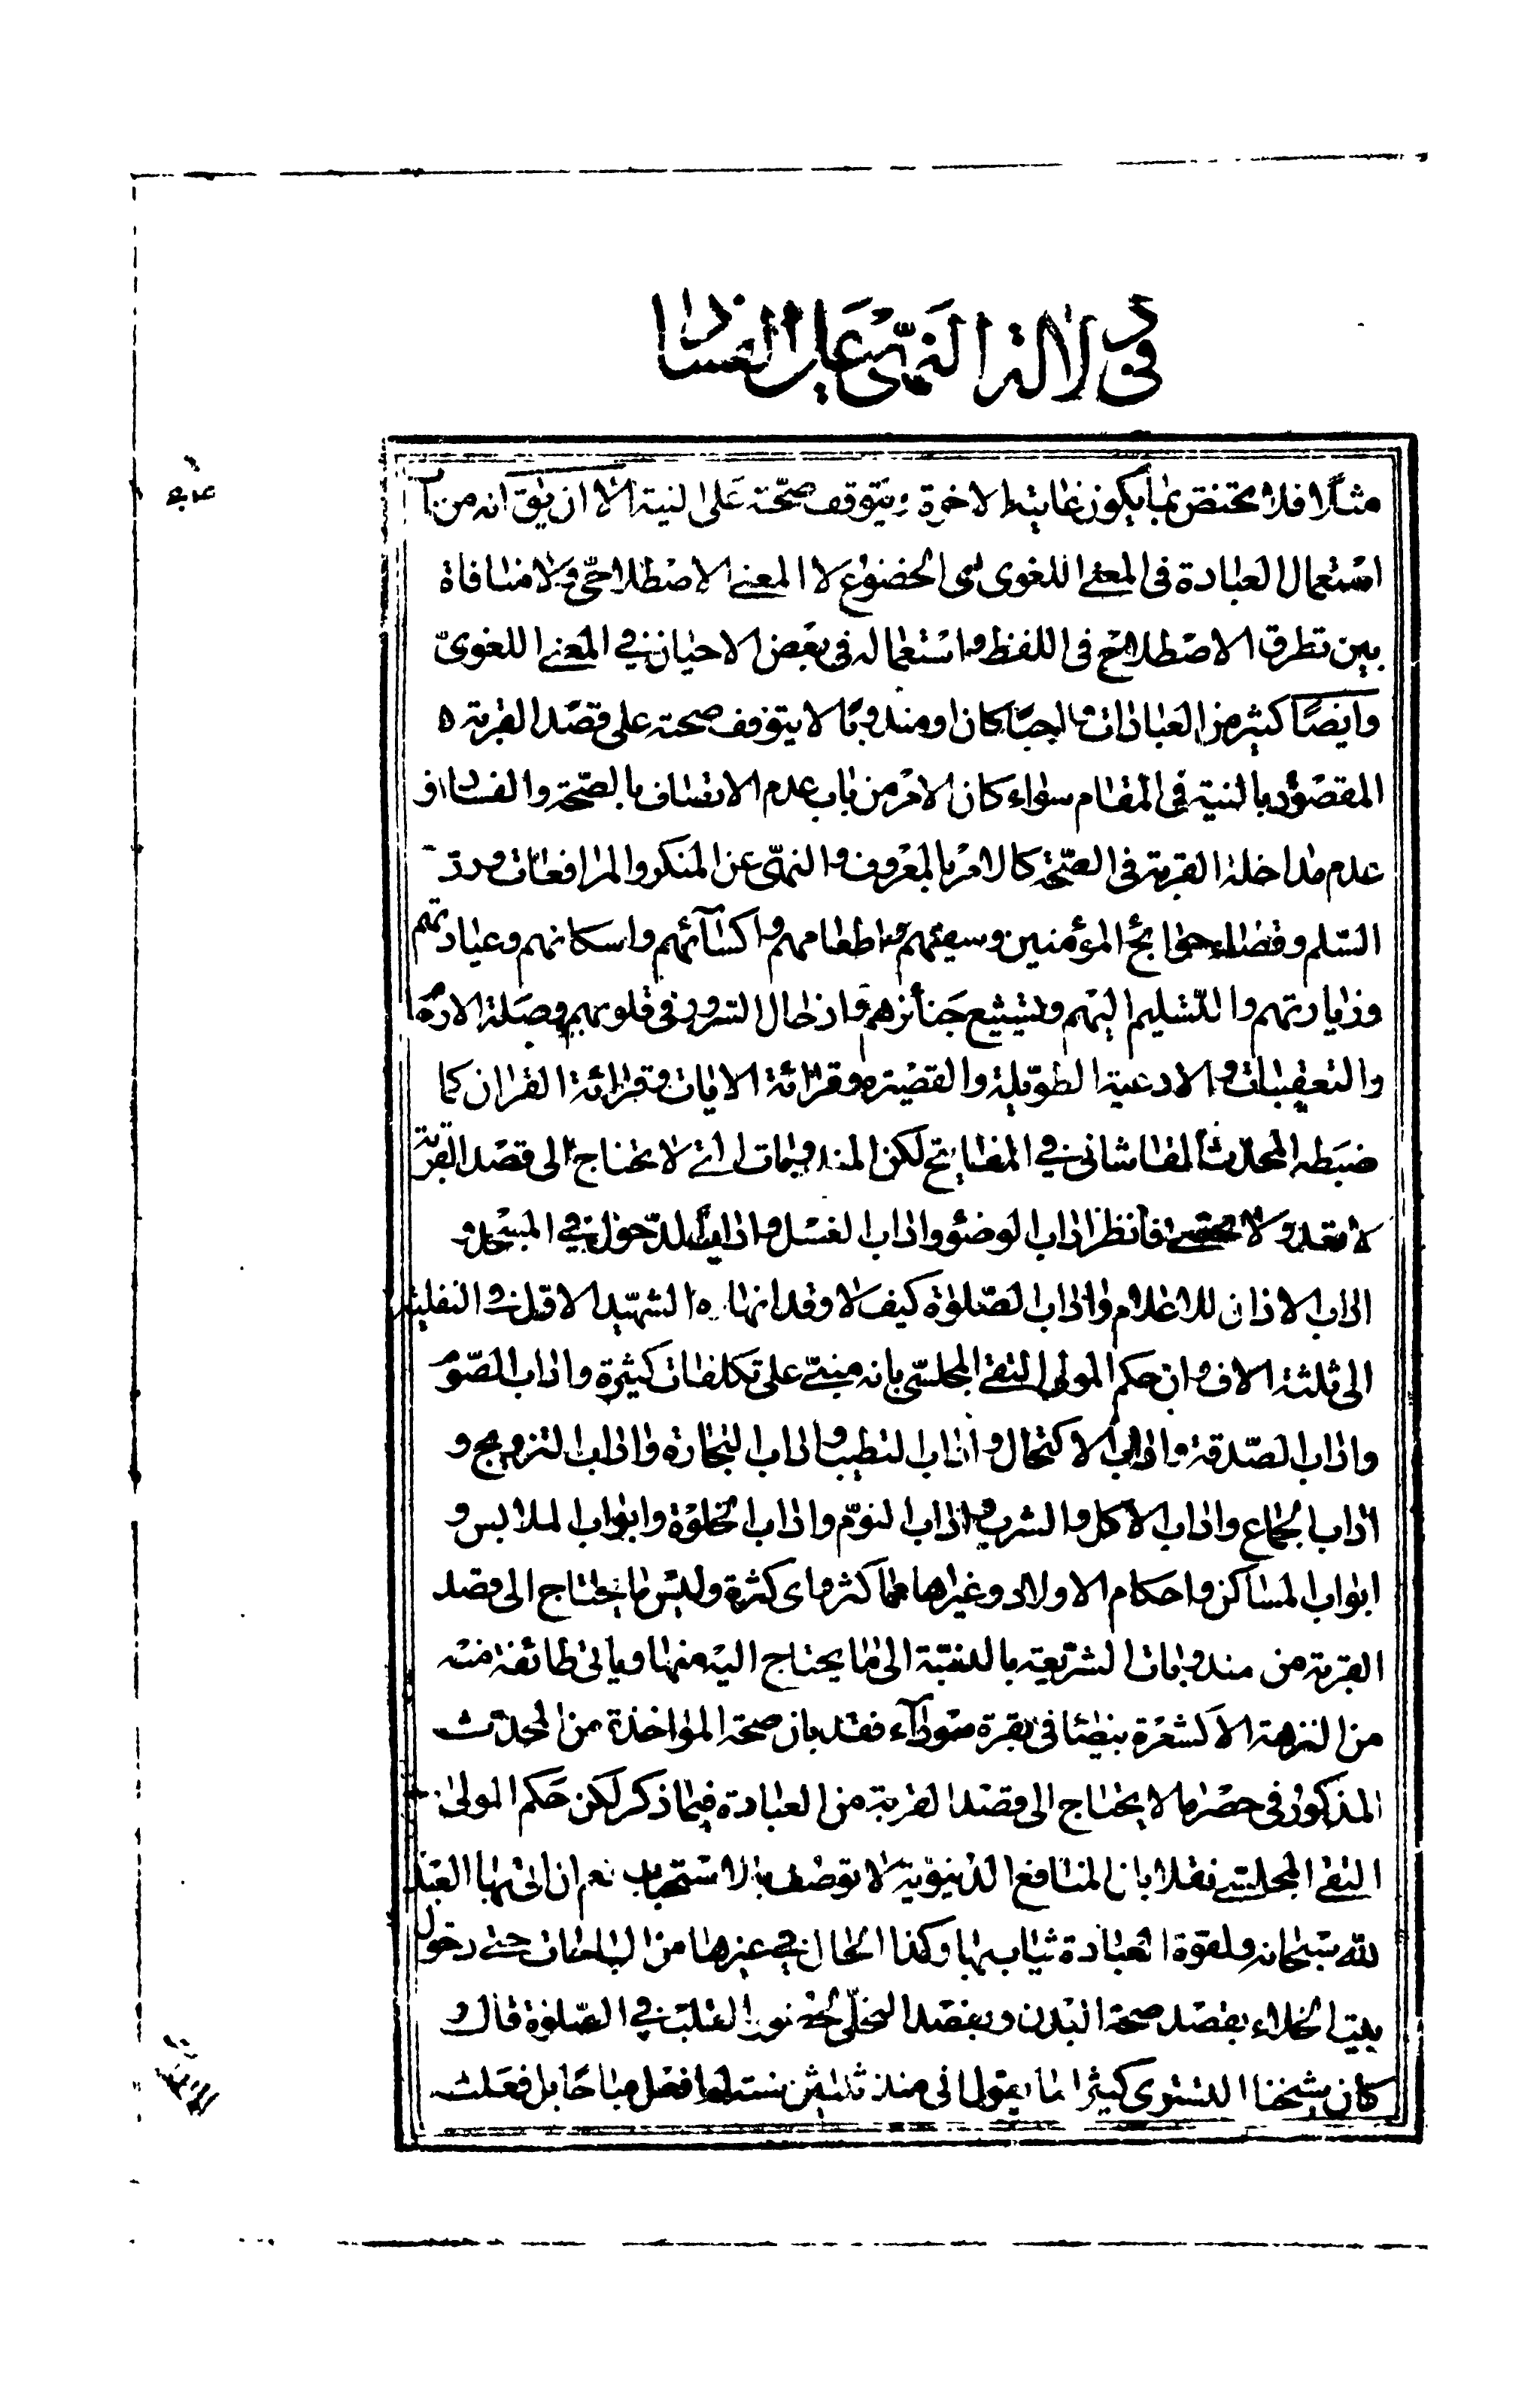 في دلالة النهي على الفساد
مثلا فلا يختص بما يكون غايته الاخرة و يتوقف صحّته على النية الا ان يق انه من
استعمال العبادة في المعنى اللغوى اى الخضوع لا المعنى الاصطلاحىّ ولا منافاة
بين تطرق الاصطلاح في اللفظ واستعماله في بعض الاحيان في المعنى اللغوىّ
وايضًا كثير من العبادات واجبًا كان او مندوبًا لا يتوقف صحته على قصد القربة
المقصود بالنية في المقام سواء كان الامر من باب عدم الاتصاف بالصّحة والفساد او
عدم مداخلة القربة في الصّحة كالامر بالمعروف والنهى عن المنكر والمرافعات ورد
السّلم وقضاء حوائج المؤمنين وسقيهم واطعامهم واكسائهم واسكانهم وعيادتهم
وزيارتهم والتسليم اليهم وتشييع جنائزهم وادخال السرور في قلوبهم وصلة الارحام
والتعقيبات والادعية الطويلة والقصيرة وقرائة الايات وقرائة القران كما
ضبطه المحدث القاشانى في المفاتيح لكن المندوبات التى لا يحتاج الى قصد القربة
لا تعد ولا تحصى فانظر اداب الوضوء واداب الغسل واداب الدّخول في المسجد و
اداب الاذان للاعلام واداب الصّلوة كيف لا وقد انهاه الشهيد الاوّل في النفلية
الى ثلثة الاف وان حكم المولى التقى المجلسىّ بانه مبنىّ على تكلفات كثيرة واداب الصّوم
واداب الصّدقة واداب الاكتحال واداب التطيب واداب التجارة واداب التزويج و
اداب الجماع واداب الاكل والشرب واداب النوم واداب الخلوة وابواب الملابس و
ابواب المساكن واحكام الاولاد وغيرها مما كثر اى كثرة وليس ما يحتاج الى قصد
القربة من مندوبات الشريعة بالنسبة الى ما يحتاج اليه منها وياتى طائفة منه
من النزهة الا كشعرة بيضاء في بقرة سوداء فقد بان صحة المؤاخذة من المحدث
المذكور في حصر ما لا يحتاج الى قصد القربة من العبادة فيما ذكر لكن حكم المولى
التقى المجلسى نقلا بان المنافع الدنيويّة لا توصف بالاستحباب نعم ان اتى بها العبد
لله سبحانه ولقوة العبادة يثاب بها وكذا الحال في غيرها من المباحات حتى دخول
بيت الخلاء بقصد صحة البدن وبقصد التخلّى لحضور القلب في الصّلوة قال و
كان شيخنا التسترى كثيرا ما يقول انى منذ ثلثين سنة لم افعل مباحًا بل فعلت